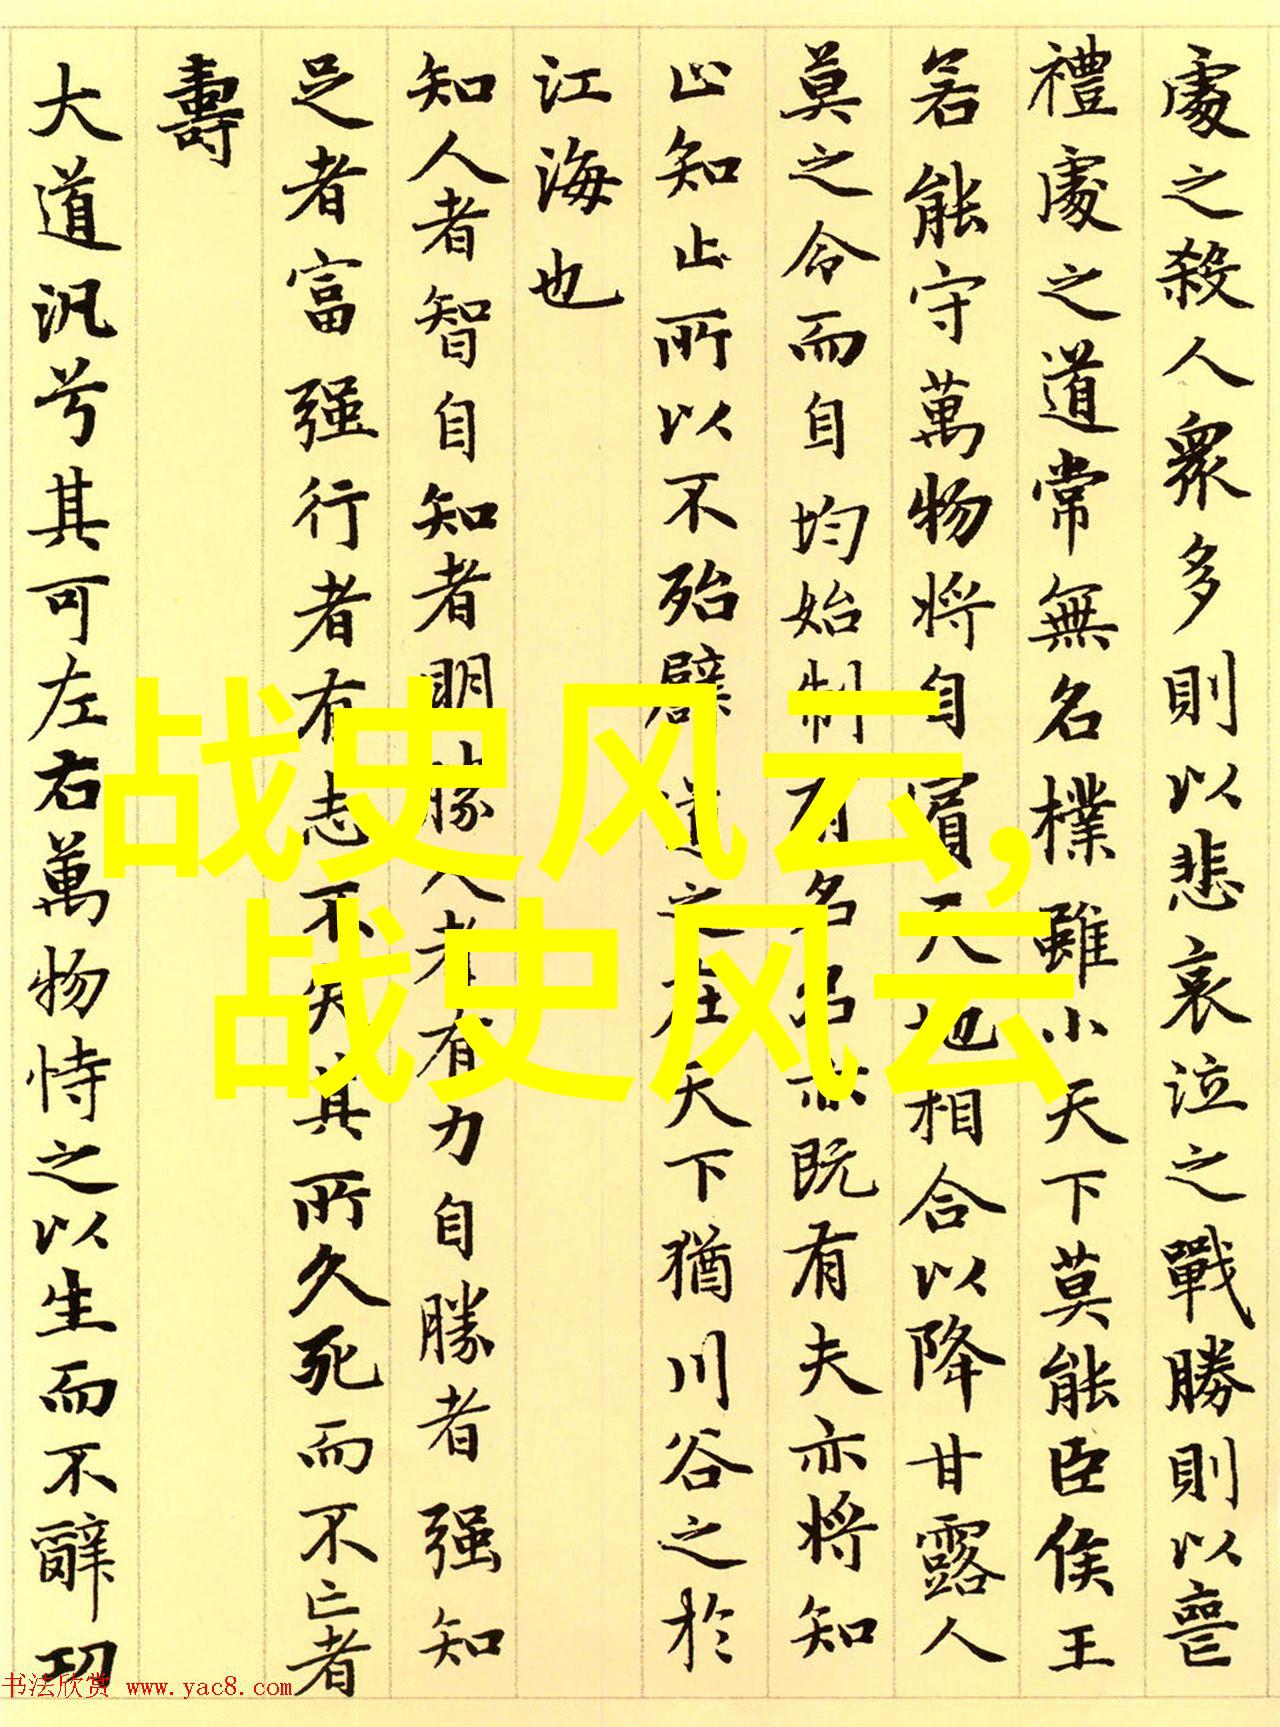 處之殺人衆多則以悲哀泣之戰勝則以喪
禮處之道常無名樸雖小天下莫能臣侯王
若能守萬物將自賓天地相合以降甘露人
莫之令而自均始制有名名亦既有夫亦將知
止知止所以不殆譬道之在天下猶川谷之於
江海也
知人者智自知者明勝人者有力自勝者强知
足者富强行者有志不失其所久死而不亡者
壽
大道汎兮其可左右萬物恃之以生而不辭功
战史风云,
战史风云
书法欣赏 www.yac8.com